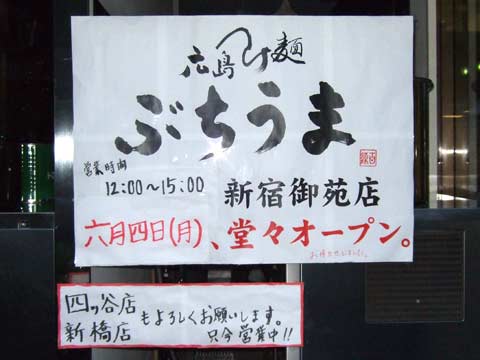 広島つけ麺
ぶちうま
営業時間
12:00〜15:00
新宿御苑店
六月四日(月)、堂々オープン。
四ッ谷店
新橋店
もよろしくお願いします。
只今営業中!!